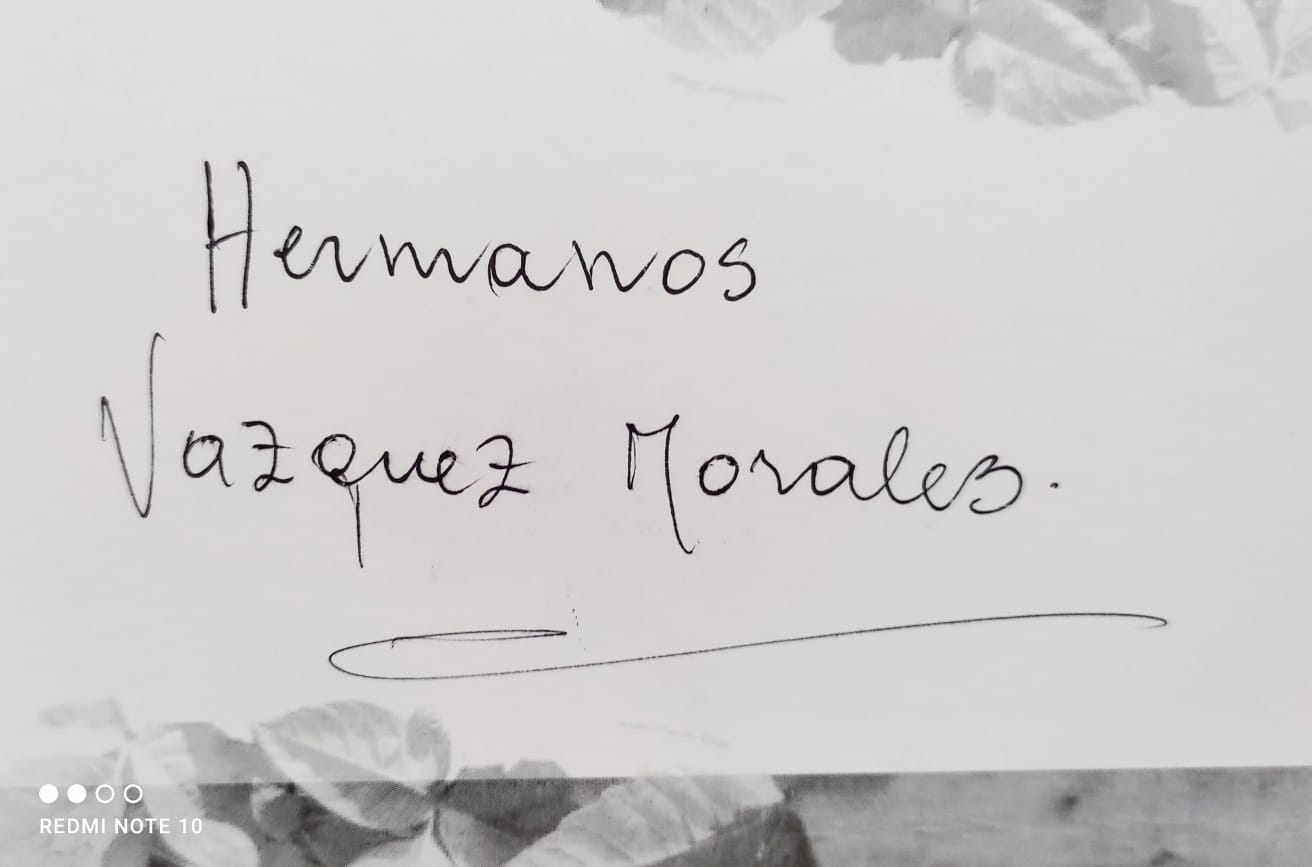 Hermanos
Vazquez Morales.
REDMI NOTE 10